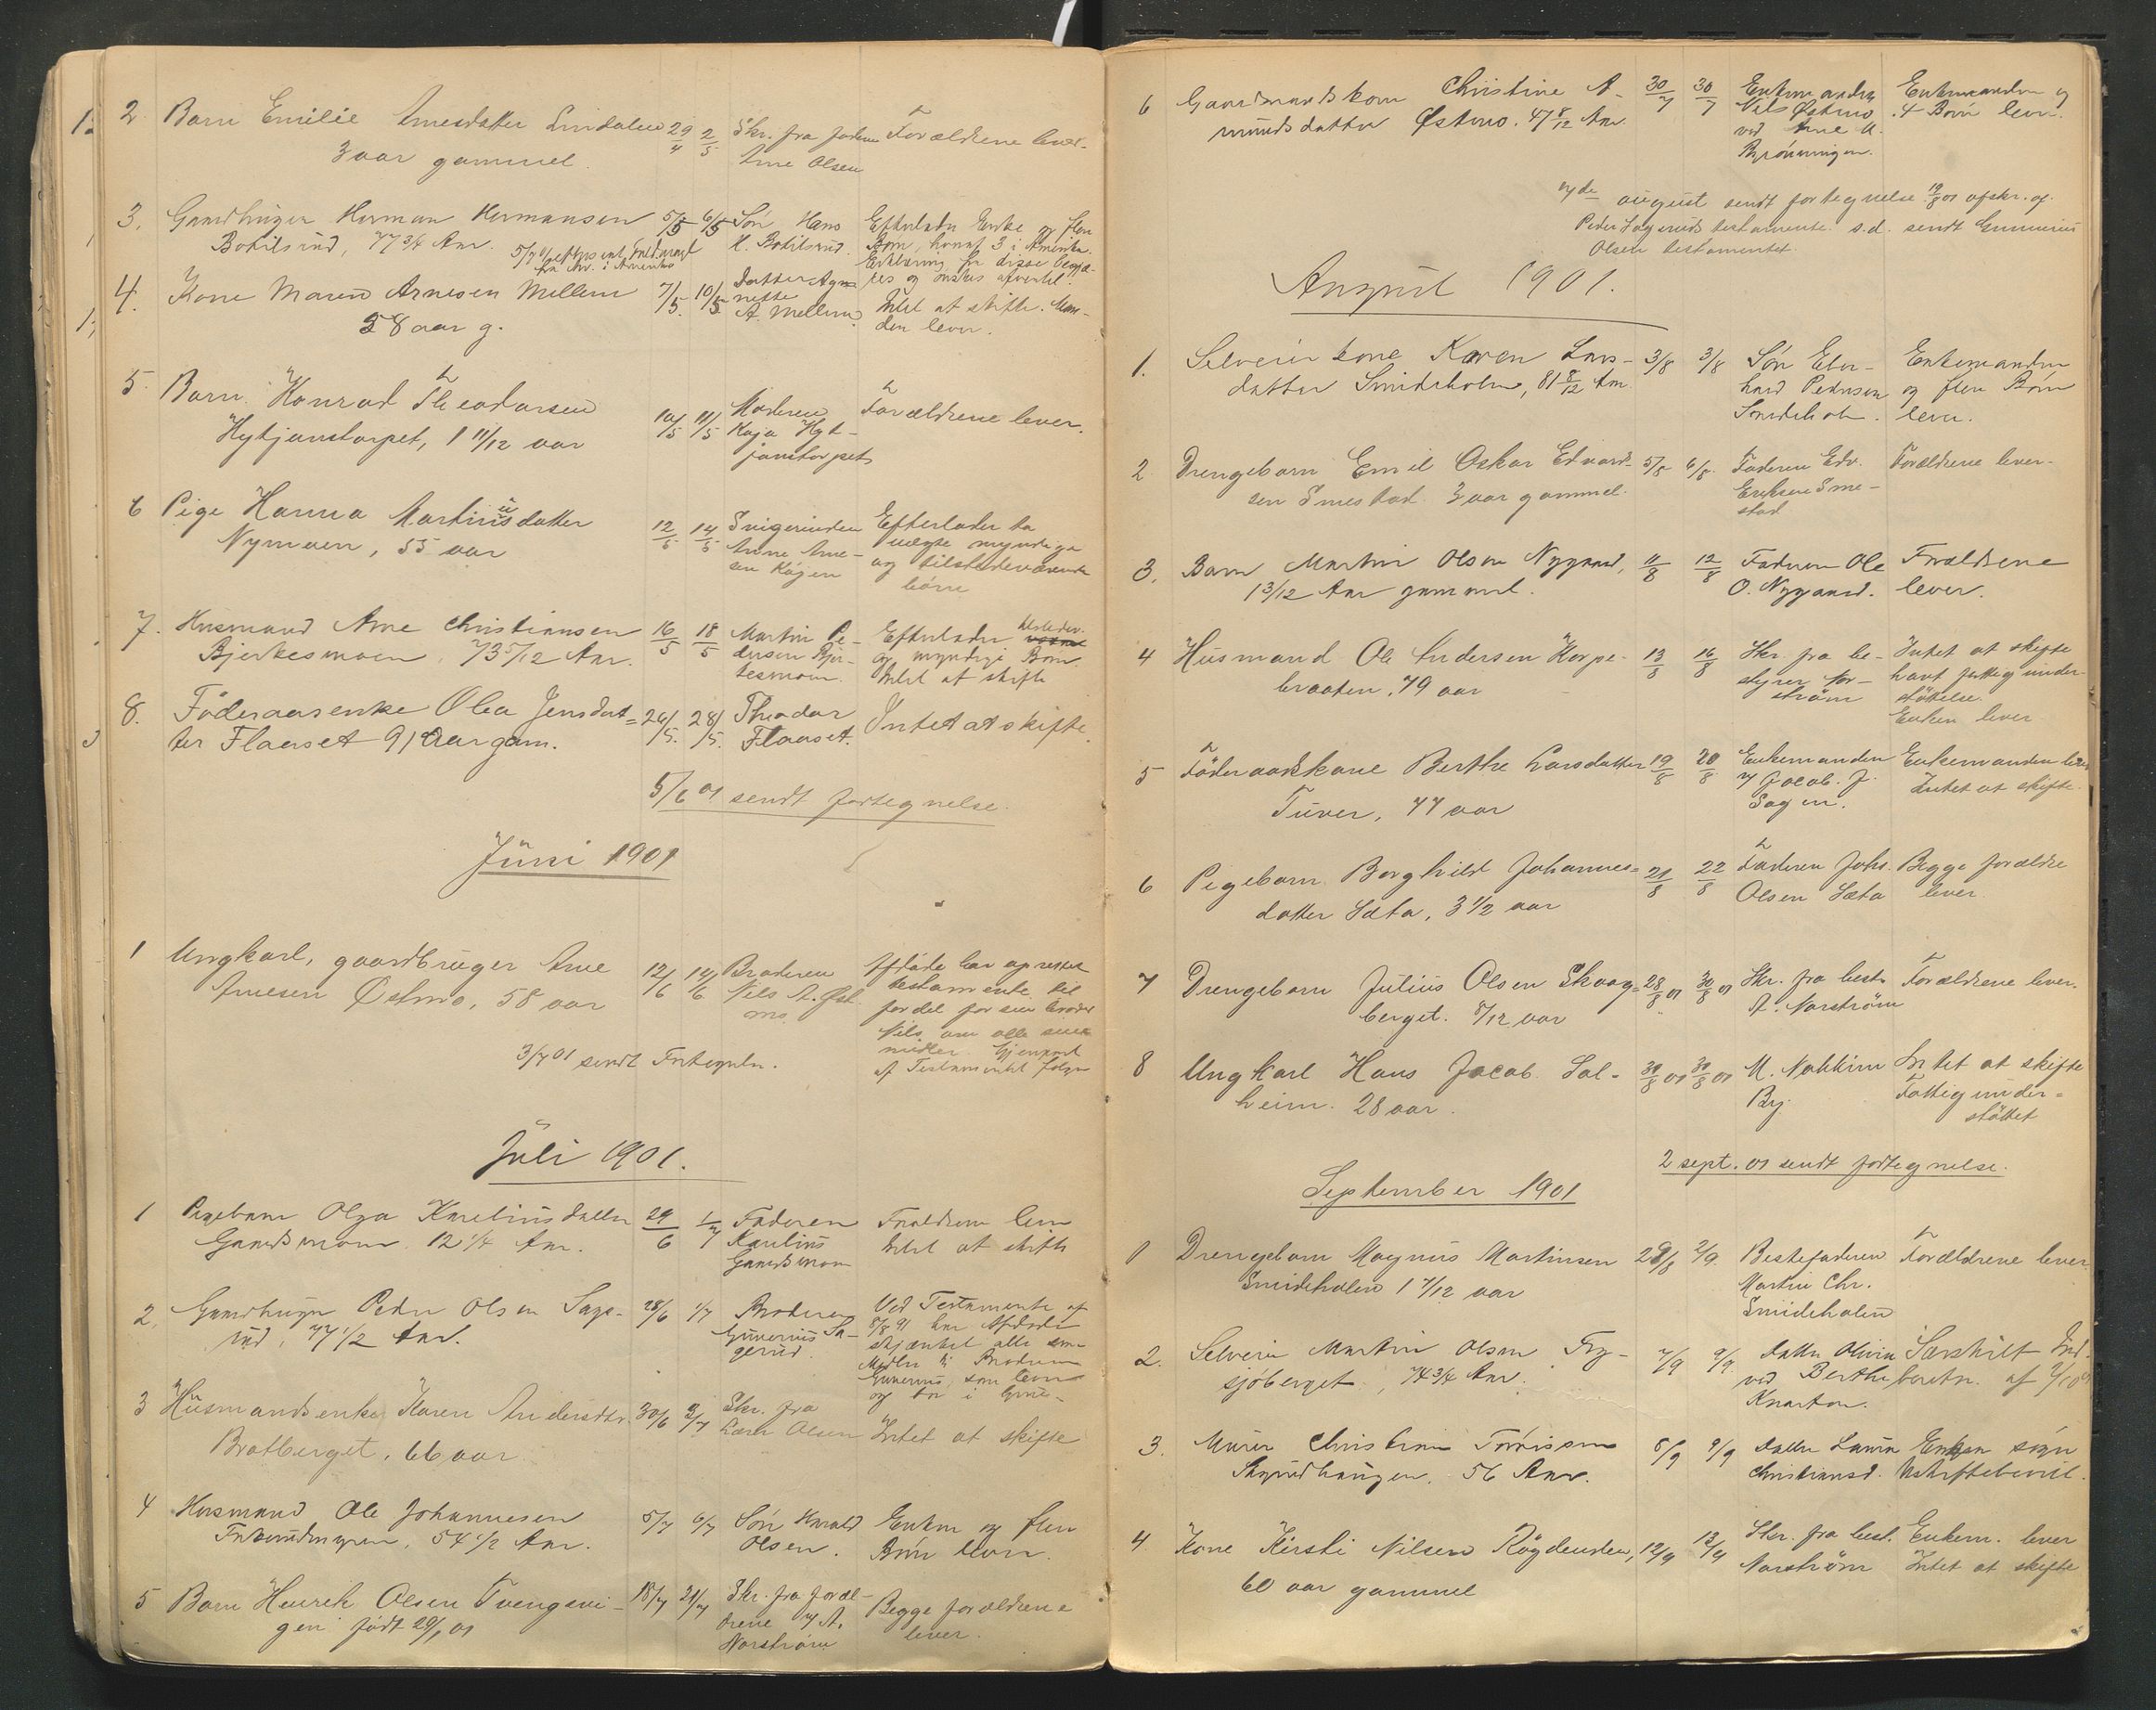 2. Barn Emilie Arnesdatter Lindalen 29/4 2/5 Skr. fra faderen Forældrene lever.
3 aar gammel. Arne Olsen
3. Gaardbruger Herman Hermansen 5/5 6/5 Søn Hans Efterlader Enke og flere
Botilsrud, 77 3/4 Aar. H. Botilsrud. Børn, hvoraf 3 i Amerika.
Erklæring fra disse begjæ-
res og ønskes afventet.
4. Kone Maren Arnesen Mellem 7/5. 10/5 Datter Agnette Intet at skifte. Man-
58 aar g. A. Mellem. den lever.
5. Barn Konrad Theodorsen 10/5 11/5 Moderen Forældrene lever.
Hytjanstorpet, 1 11/12 aar Kaja Hyt-
janstorpet
6 Pige Hanna Martinusdatter 12/5 14/5 Svigerinden Efterlader to
Nymoen, 55 aar Anne Arne- uægte myndige
sen Kögen og tilstedeværende
börn
7. Husmand Arne Christiansen 16/5 18/5 Martin Pe- Efterlader tilstedev.
Bjerkesmoen, 73 5/12 Aar. dersen Bjer- og myndige Børn.
kesmoen. Intet at skifte
8. Föderaadsenke Olea Jensdat= 26/5. 28/5. Theodor Intet at skifte.
ter Flaaset 91 Aar gam. Flaaset.
5/6 01 sendt fortegnelse.
Juni 1901
1 Ungkarl, gaardbruger Arne 12/6 14/6 Broderen Afdøde har oprettet
Arnesen Østmo, 58 aar Nils A. Øst- testamente til
mo. fordel for sin broder
Nils om alle sine
midler. Gjenpart
af Testamentet følger
3/7 01 sendt Fortegneln.
Juli 1901.
1 Pigebarn Olga Kareliusdatter 29/6 1/7 Faderen Forældrene lever
Gaardsmoen 12 1/4 Aar. Karelius Intet at skifte
Gaardsmoen
2. Gaardbruger Peder Olsen Sage- 28/6 1/7 Broderen Ved Testamente af
rud, 77 1/2 Aar. Gunerius Sa- 5/8 91 har Afdøde
gerud. skjænket alle sine
Midler til Broderen
Gunerius, som lever
og bor i Grue.
3 Husmandsenke Karen Andersdtr. 30/6 3/7 Skr. fra
Bratberget, 66 aar Lars Olsen Intet at skifte
4 Husmand Ole Johannesen 5/7 6/7 Søn Harald Enken og flere
54 1/2 Aar. Olsen. Børn lever.
5 Barn Henrik Olsen Tvengsvi- 18/7 21/7 Skr. fra foræl- Begge forældrene
gen født 29/1 01 drene v/ A. lever.
Norström
6 Gaardmandskone Christine A- 30/7 30/7 Enkemanden Enkemanden og
mundsdatter Østmo. 47 8/12 Aar. Nils Østmo 4 Børn lever.
ved Arne A.
Brönningen.
august sendt fortegnelse afskr. af
Peder Sageruds testamente. s.d. sendt Gunerius
Olsen testamentet.
August 1901.
1. Selveierkone Karen Lars- 3/8 3/8 Søn Eber- Enkemanden
datter Smideholen, 81 8/12 Aar. hard Pedersen og flere Børn
Smidehol. lever.
2 Drengebarn Emil Oskar Edvard- 5/8 6/8. Faderen Edv. Forældrene lever.
sen Smestad. 3 aar gammel. Eriksen Sme-
stad
3. Barn Martin Olsen Nygaard, 11/8 12/8 Faderen Ole Forældrene
1 3/12 Aar gammel. O. Nygaard. lever.
4 Husmand Ole Andersen Korpe- 13/8 16/8 Skr. fra be- Intet at skifte
braaten. 79 aar styrer Nor- havt fattigunder-
ström støttelse.
Enken lever
5 Föderaadskone Berthe Larsdatter 19/8 20/8 Enkemanden Enkemanden lever
Tuver, 77 aar v/ Jacob. J. Intet at skifte.
Sagen.
6 Pigebarn Borghild Johannes= 21/8 22/8 Faderen Johs. Begge forældre
datter Sæta, 3 1/2 aar Olsen Sæta lever
7 Drengebarn Julius Olsen Skaag= 28/8 01 30/8 01 Skr. fra best. Forældrene lever.
berget. 8/12 aar A. Norström
8 Ungkarl Hans Jacob Sol- 30/8 01 30/8 01 M. Nokkim Intet at skifte
heim. 28 aar. By. Fattigunder=
støttet
2 sept. 01 sendt fortegnelse.
September 1901
1 Drengebarn Magnus Martinsen 29/8 2/9. Bestefaderen Forældrene lever.
Smideholen 1 7/12 aar Martin Chr.
Smideholen
2. Selveier Martin Olsen Fry- 7/9 9/9 Datter Olivia Særskilt Ind-
sjöberget, 74 3/4 Aar. ved Berthe beretn. af
3. Murer Christian Tønissen 8/9 9/9 Datter Laura Enken søger
Skyrudhaugen. 56 Aar. Christiansd. Uskiftebevil.
4. Kone Kersti Nilsen Rögdenden, 12/9 13/9 Skr. fra best. Enkem. lever
60 aar gammel Norström Intet at skifte